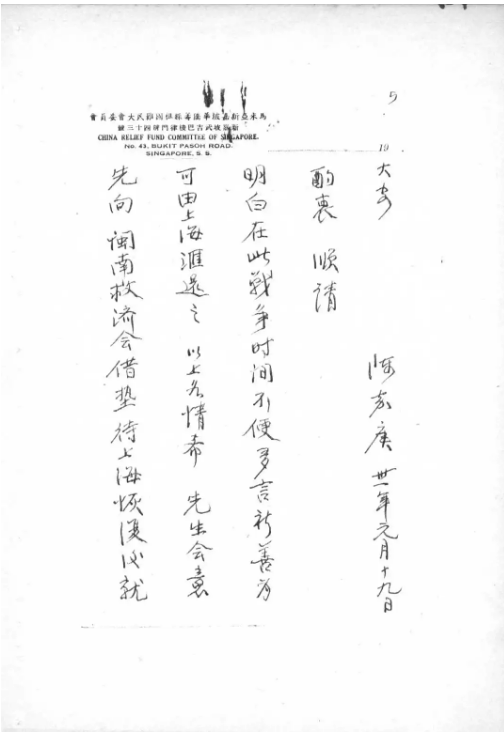 5
馬來亞新嘉坡華僑籌賑祖國難民大會委員會
新嘉坡武吉巴梳律門牌四十三號
CHINA RELIEF FUND COMMITTEE OF SINGAPORE.
No. 43, BUKIT PASOH ROAD.
SINGAPORE, S. S.
19
先向 闽南救济会借垫待上海恢復 就
可由上海滙還之 以上各情希 先生会意
明白在此戰争时间不便多言祈善为
酌衷 顺请
大安
陈嘉庚 卅一年元月十九日